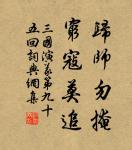 歸師勿掩
窮寇莫追
三國演義第九十
五回詞典網集